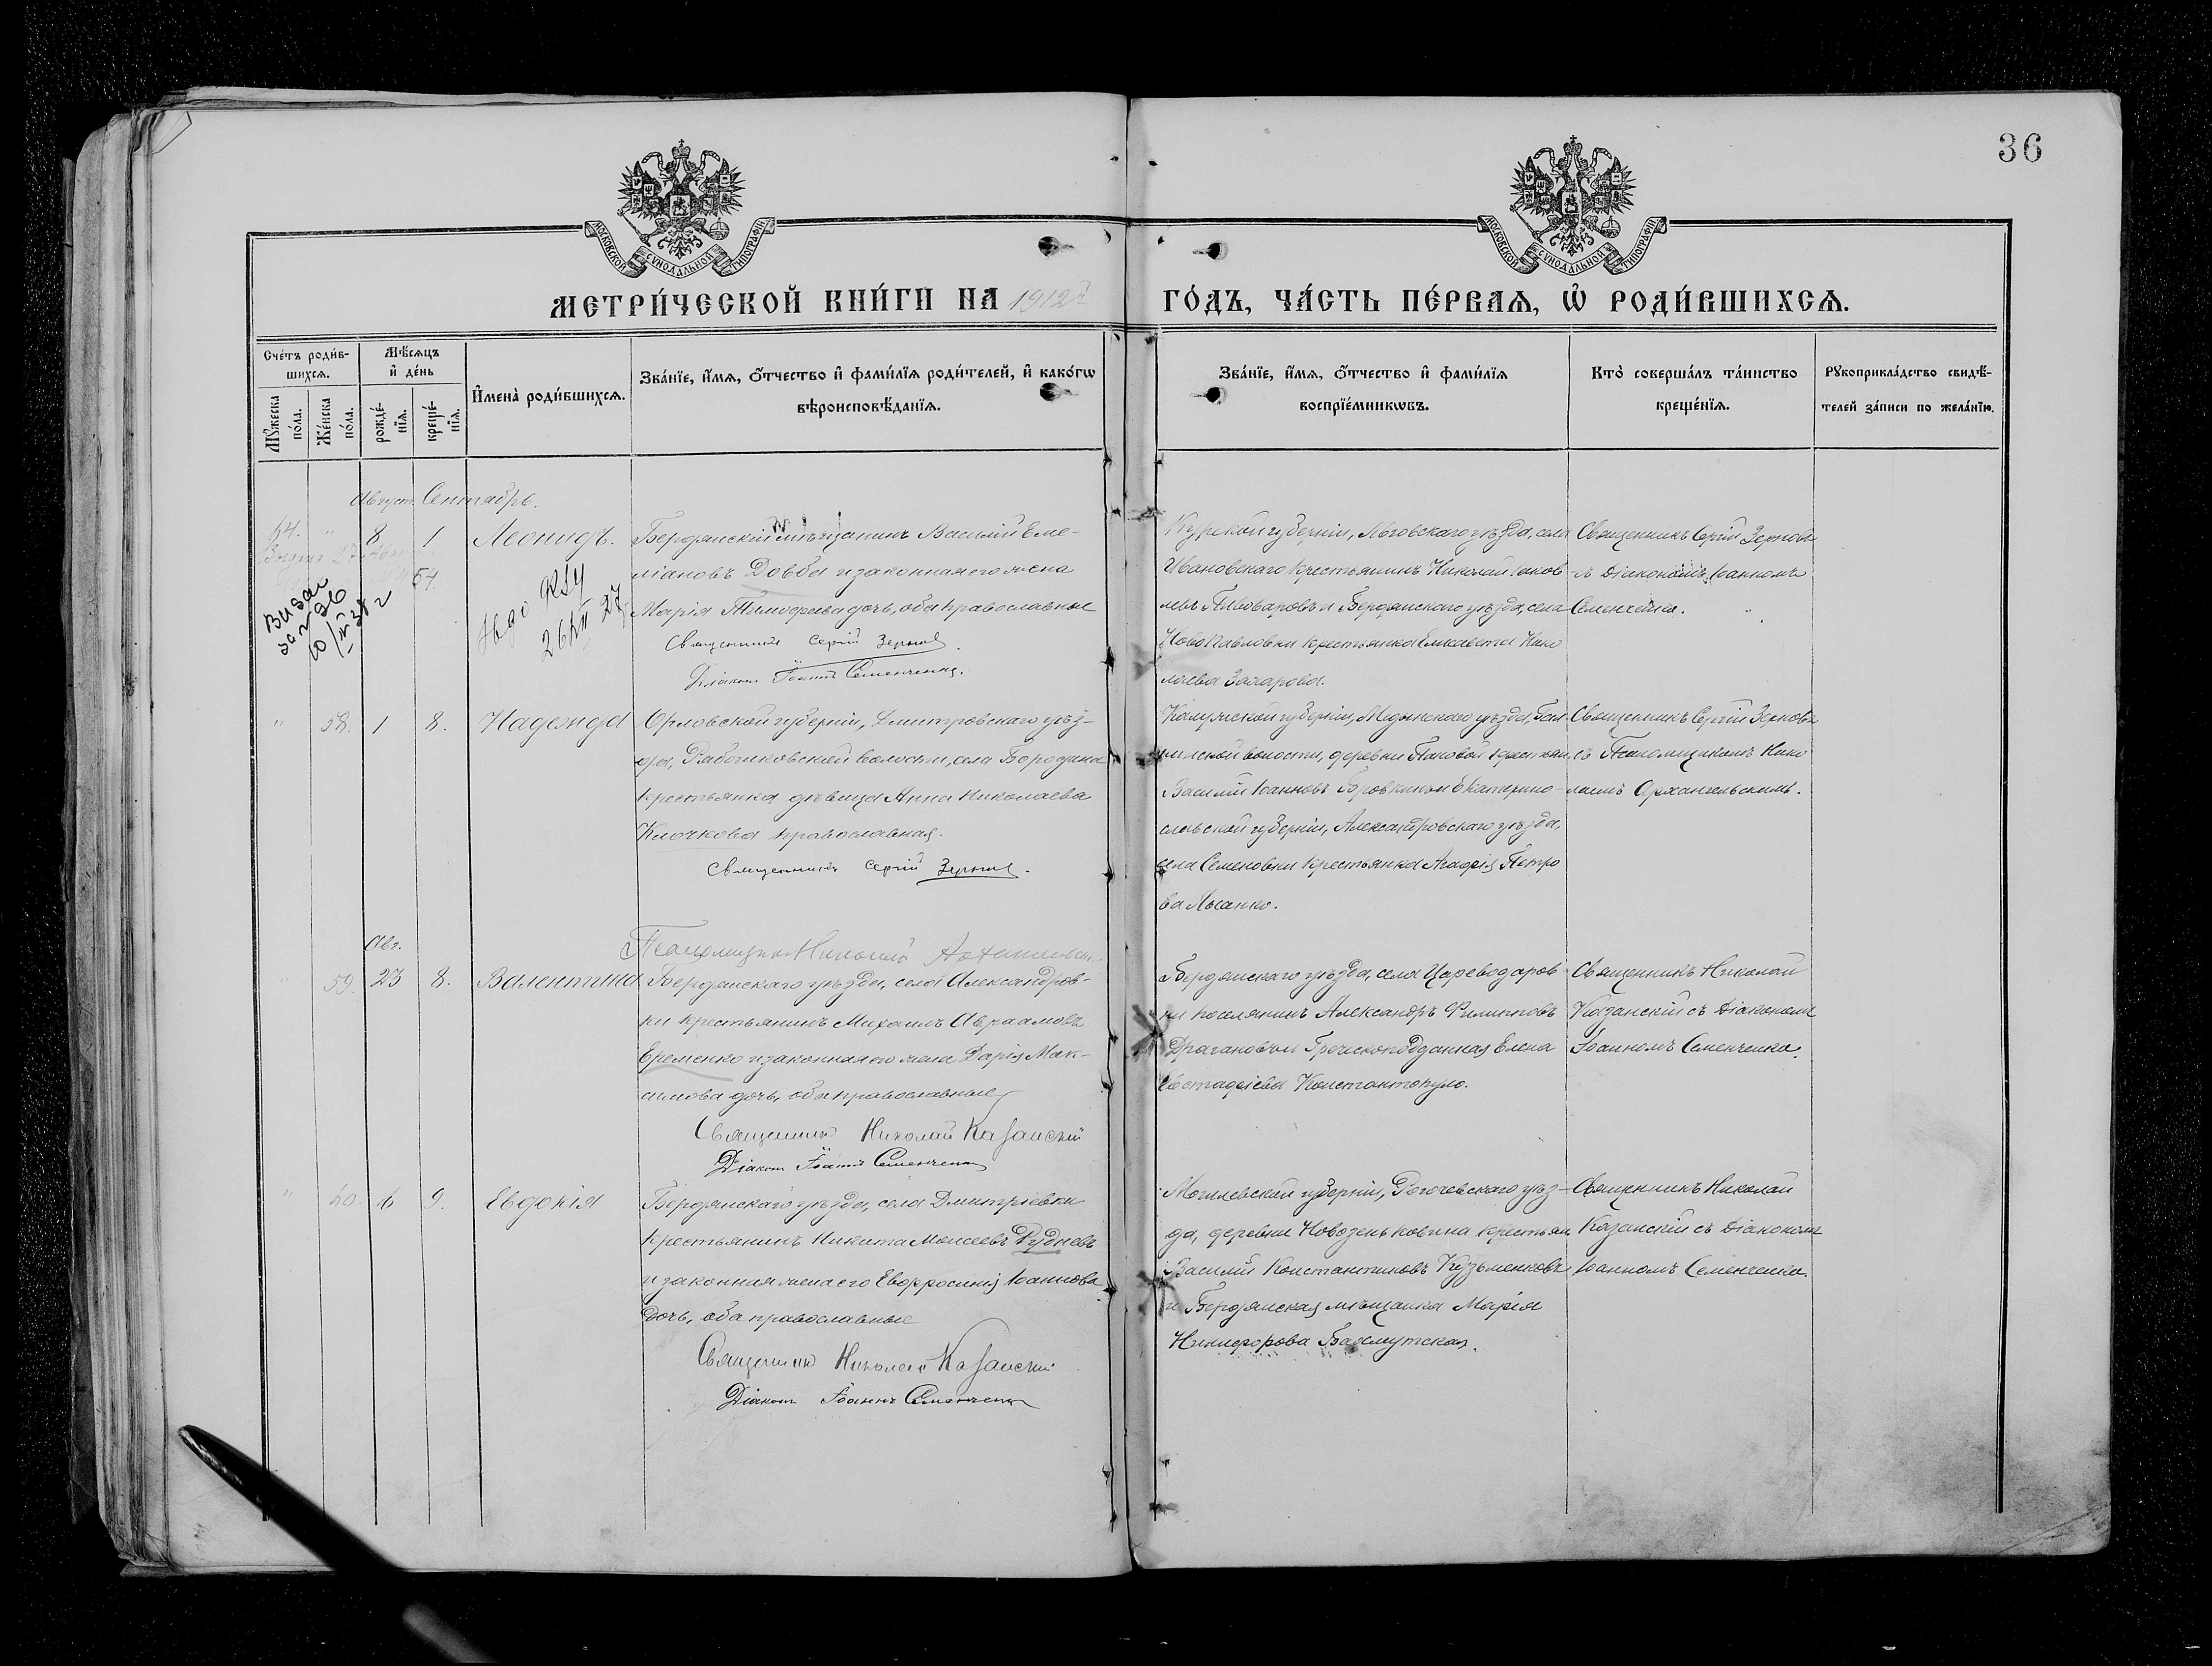 36
МОСКОВСКОЙ СѴНОДАЛЬНОЙ ТИПОГРАФІИ
МОСКОВСКОЙ СѴНОДАЛЬНОЙ ТИПОГРАФІИ
МЕТРИ́ЧЕСКОЙ КНИ́ГИ НА 1912й ГО́ДЪ, ЧА́СТЬ ПЕ́РВАѦ, Ѡ РОДИ́ВШИХСѦ.
Сче́тъ роди́в-
шихсѧ.
Мꙋ́жеска по́ла.
Же́нска по́ла.
Мѣ́сѧцъ
и҆ де́нь
рожде́-
нїѧ.
креще́-
нїѧ.
И҆мена̀ роди́вшихсѧ.
Зва́нїе, и҆́мѧ, ѻ҆́тчество и҆ фами́лїѧ роди́телей, и҆ како́гѡ
вѣроисповѣ́данїѧ.
Зва́нїе, и҆́мѧ, ѻ҆́тчество и҆ фами́лїѧ
воспрїе́мникѡвъ.
Кто̀ соверша́лъ та́инство
креще́нїѧ.
Рꙋкоприкла́дство свидѣ́-
телей за́писи по жела́нїю.
Август. Сентябрь.
54. " 8 1 Леонидъ.
54
10/II 38 г
Бердянскій мѣщанинъ Василій Еме-
ліановъ Довба и законная его жена
Марія Тимофеева дочь, оба православные
Священникъ Сергій Зерновъ.
Діаконъ Іоаннъ Семенченко.
Курской губерніи, Льговскаго уѣзда, села
Ивановскаго крестьянинъ Николай Іаков
левъ Пивоваровъ и Бердянскаго уѣзда, села
Ново Павловки крестьянка Елисавета Нико
лаева Захарова.
Священникъ Сергій Зерновъ
съ Діакономъ Іоанномъ
Семенченко.
" 58. 1 8. Надежда
Орловской губерніи, Дмитровскаго уѣз-
да, волости, села Бородина
крестьянка дѣвица Анна Николаева
Клочкова православная.
Священникъ Сергій Зерновъ.
Псаломщикъ Николай
Калужской губерніи, Медынскаго уѣзда,
волости, деревни крестьян.
Василій Іоанновъ Боровкинъ и Екатерино-
славской губерніи, Александровскаго уѣзда,
села Семеновки крестьянка Агафія Петро
ва Лысанко.
Священникъ Сергій Зерновъ
съ Псаломщикомъ Нико
лаемъ Архангельскимъ.
Авг.
" 59. 23 8. Валентина
Бердянскаго уѣзда, села Александров-
ки крестьянинъ Михаилъ Авраамовъ
Еременко и законная его жена Дарія Мак-
симова дочь, оба православные
Священникъ Николай Казанскій
Діаконъ Іоаннъ Семенченко
Бердянскаго уѣзда, села Цареводаров
ки поселянинъ Александръ Филипповъ
Драгановъ и Греческоподданная Елена
Евстафіева Константопуло.
Священникъ Николай
Казанскій съ Діакономъ
Іоанномъ Семенченко.
" 60. 6 9. Евдокія
Бердянскаго уѣзда, села Дмитріевки
крестьянинъ Никита Моисеевъ Рудневъ
и законная жена его Евфросинія Іоаннова
дочь, оба православные
Священникъ Николай Казанскій
Діаконъ Іоаннъ Семенченко
Могилевской губерніи, Рогачевскаго уѣз-
да, деревни крестьян.
Василій Константиновъ Кузьменковъ
и Бердянская мѣщанка Марія
Никифорова Бахмутская.
Священникъ Николай
Казанскій съ Діакономъ
Іоанномъ Семенченко.